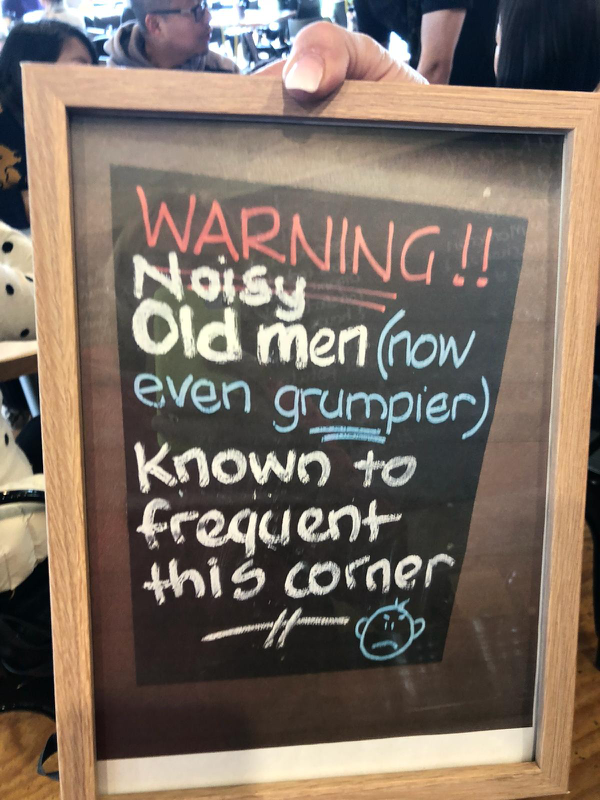 WARNING!!
Noisy
Old men (now
even grumpier)
Known to
frequent
this corner